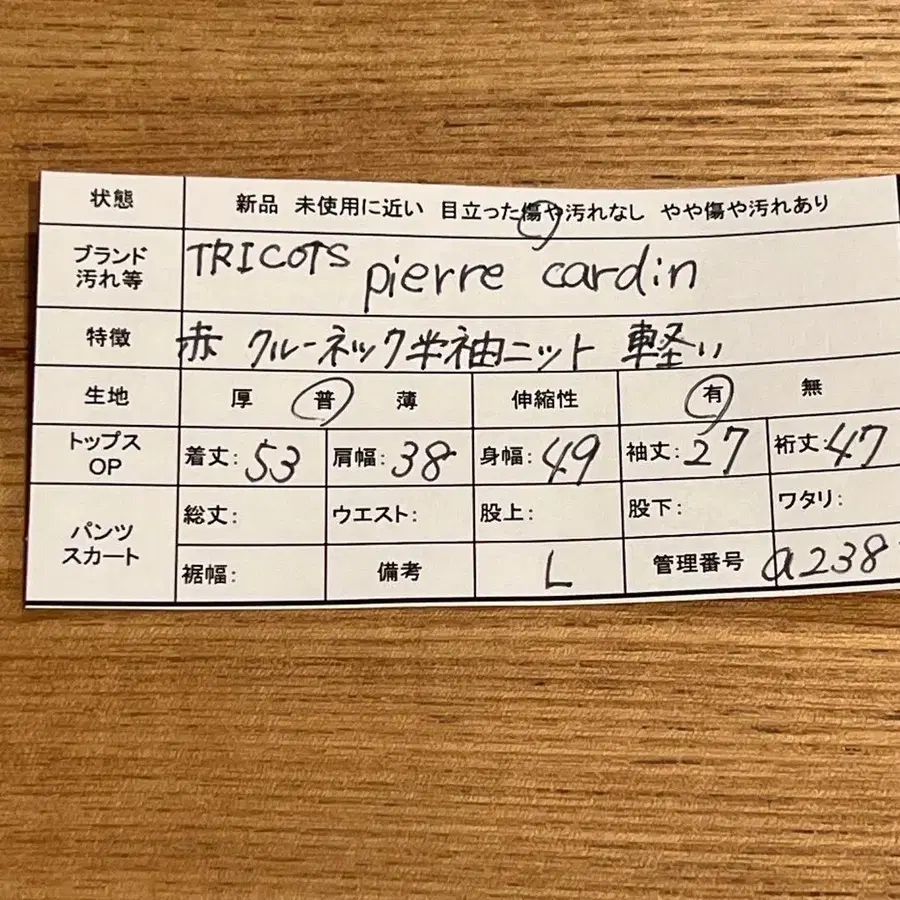 状態 新品 未使用に近い 目立った傷や汚れなし やや傷や汚れあり
ブランド 汚れ等 TRICOTS pierre cardin
特徴 赤 クルーネック半袖ニット 軽い
生地 厚 普 薄 伸縮性 有 無
トップス OP 着丈:53 肩幅:38 身幅:49 袖丈:27 裄丈:47
パンツ スカート 総丈: ウエスト: 股上: 股下: ワタリ:
裾幅: 備考 L 管理番号 a238